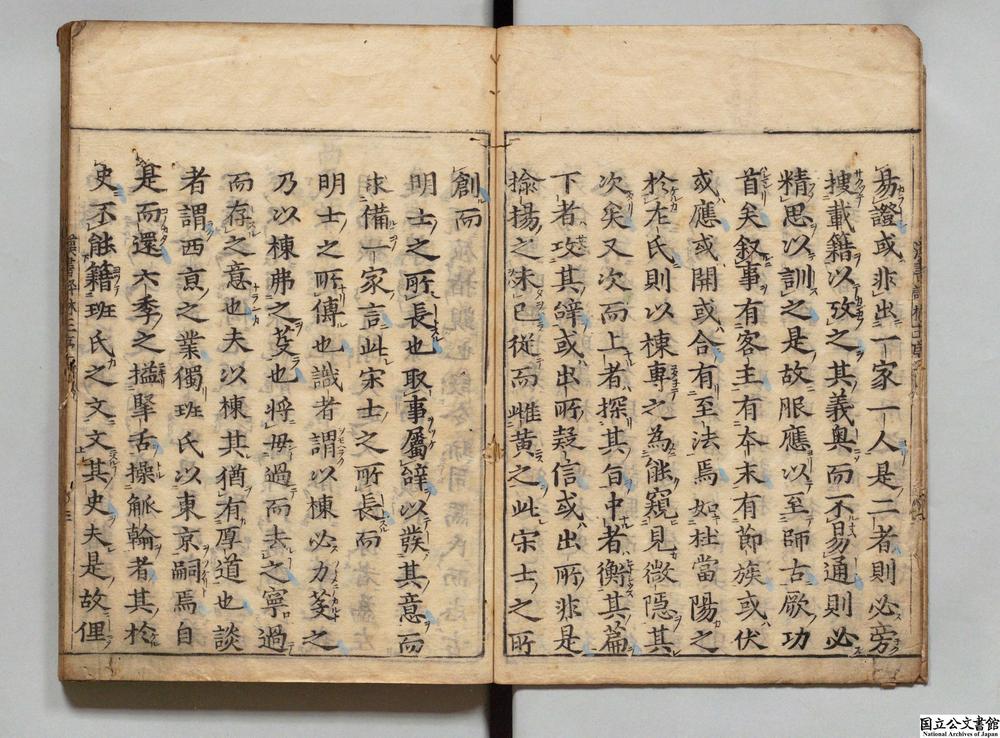 易證或非出一家一人是二者則必旁
捜載籍以攷之其義奥而不易通則必
精思以訓之是故服應以至師古厥功
首矣叙事有客主有本末有節族或伏
或應或開或合有至法焉如杜當陽之
於左氏則以棟專之為能窺見微隱其
次矣又次而上者探其旨中者衡其篇
下者攻其辭或出所疑信或出所非是
揄揚之未已從而雌黄之此宋士之所
創而
明士之所長也取事屬辭以発其意而
求備一家言此宋士之所長而
明士之所傳也識者謂以棟必力芟之
乃以棟弗之芟也將毋過而去之寧過
而存之意也夫以棟其猶有厚道也談
者謂西京之業獨班氏以東京嗣焉自
是而還六季之搵掔舌操觚翰者其於
史不能籍班氏之文文其史夫是故俚
国立公文書館
National Archives of Japan